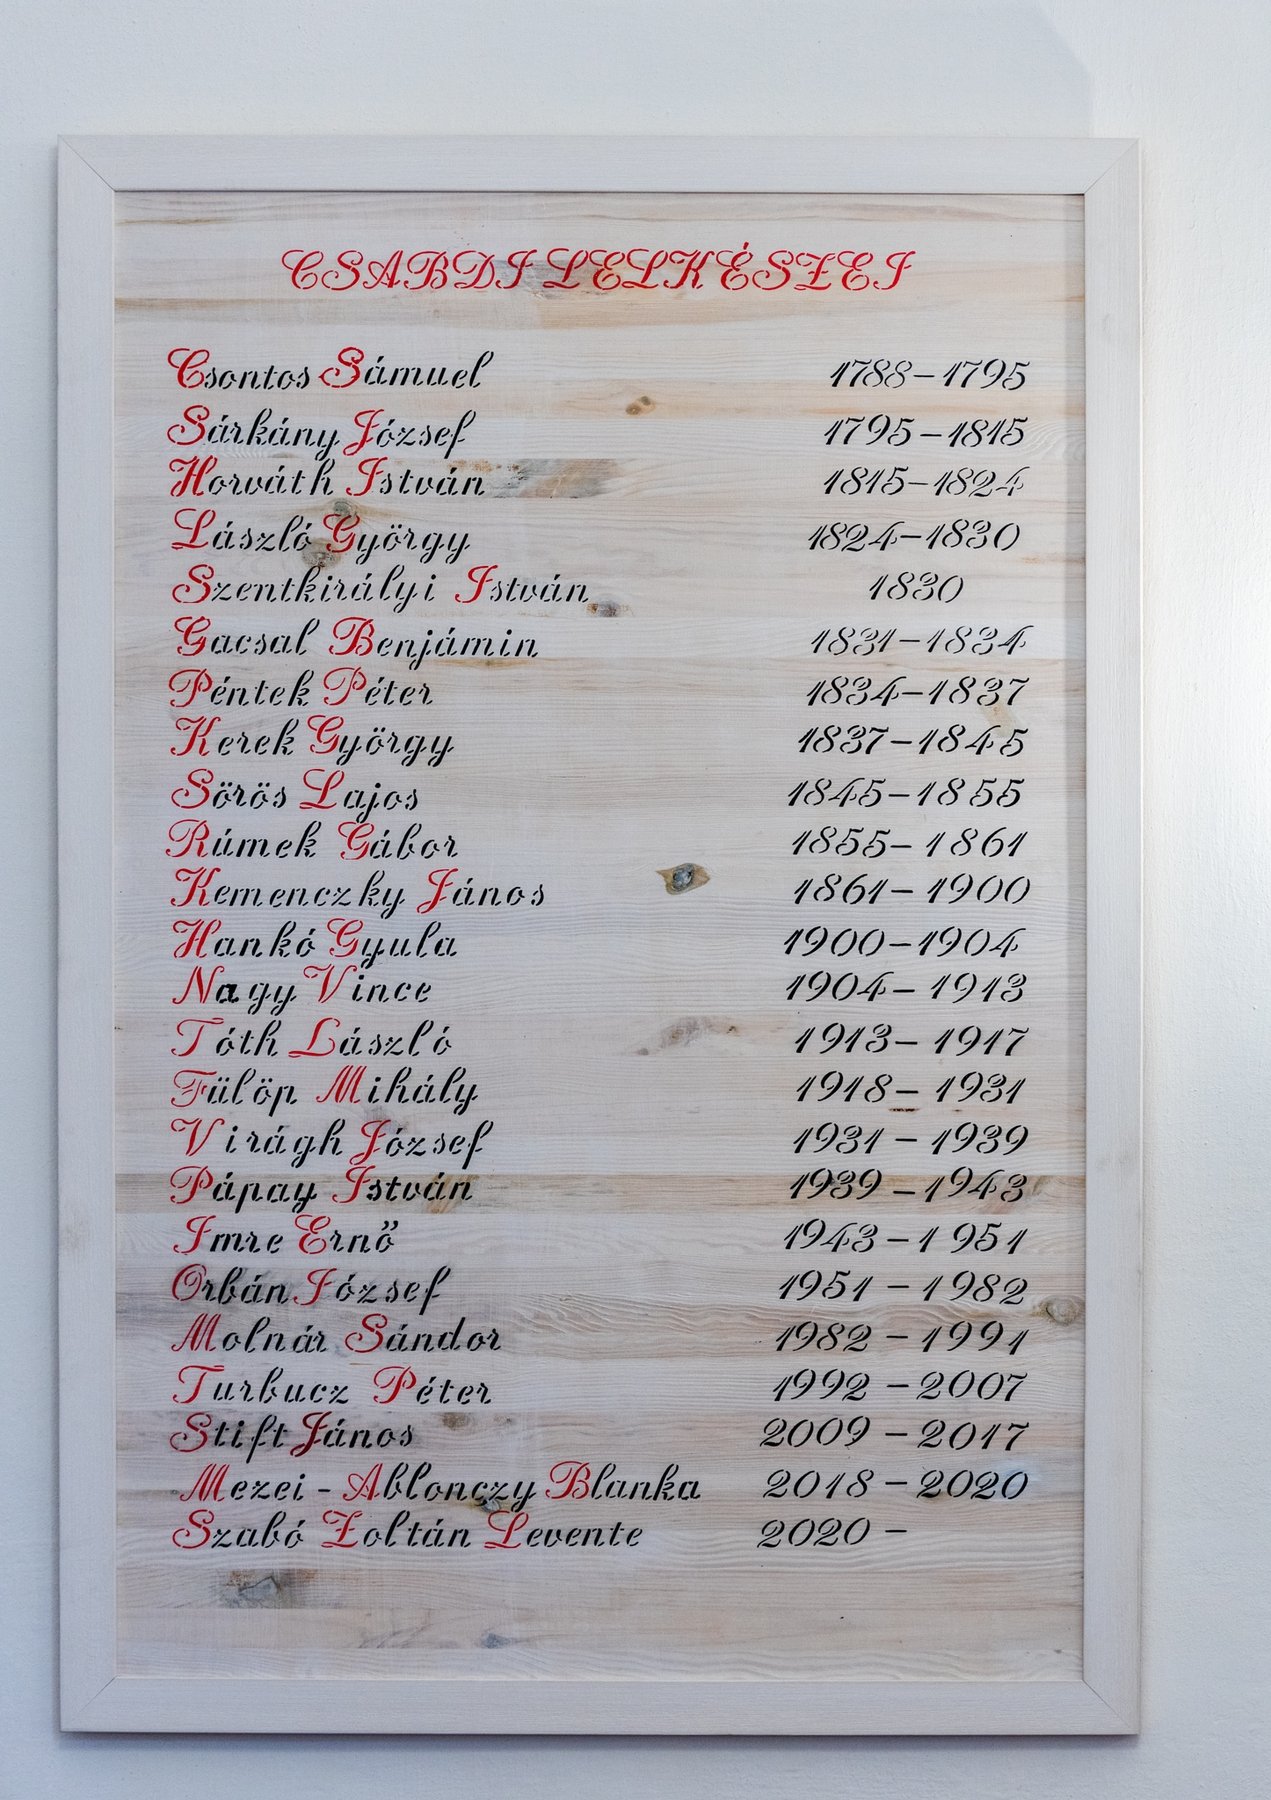 CSABDI LELKÉSZEI
Csontos Sámuel 1788-1795
Sárkány József 1795-1815
Horváth István 1815-1824
László György 1824-1830
Szentkirályi István 1830
Gacsal Benjámin 1831-1834
Péntek Péter 1834-1837
Kerek György 1837-1845
Sörös Lajos 1845-1855
Rúmek Gábor 1855-1861
Kemenczky János 1861-1900
Hankó Gyula 1900-1904
Nagy Vince 1904-1913
Tóth László 1913-1917
Fülöp Mihály 1918-1931
Virágh József 1931-1939
Pápay István 1939-1943
Imre Ernő 1943-1951
Orbán József 1951-1982
Molnár Sándor 1982-1991
Turbucz Péter 1992-2007
Stift János 2009-2017
Mezei-Ablonczy Blanka 2018-2020
Szabó Zoltán Levente 2020-